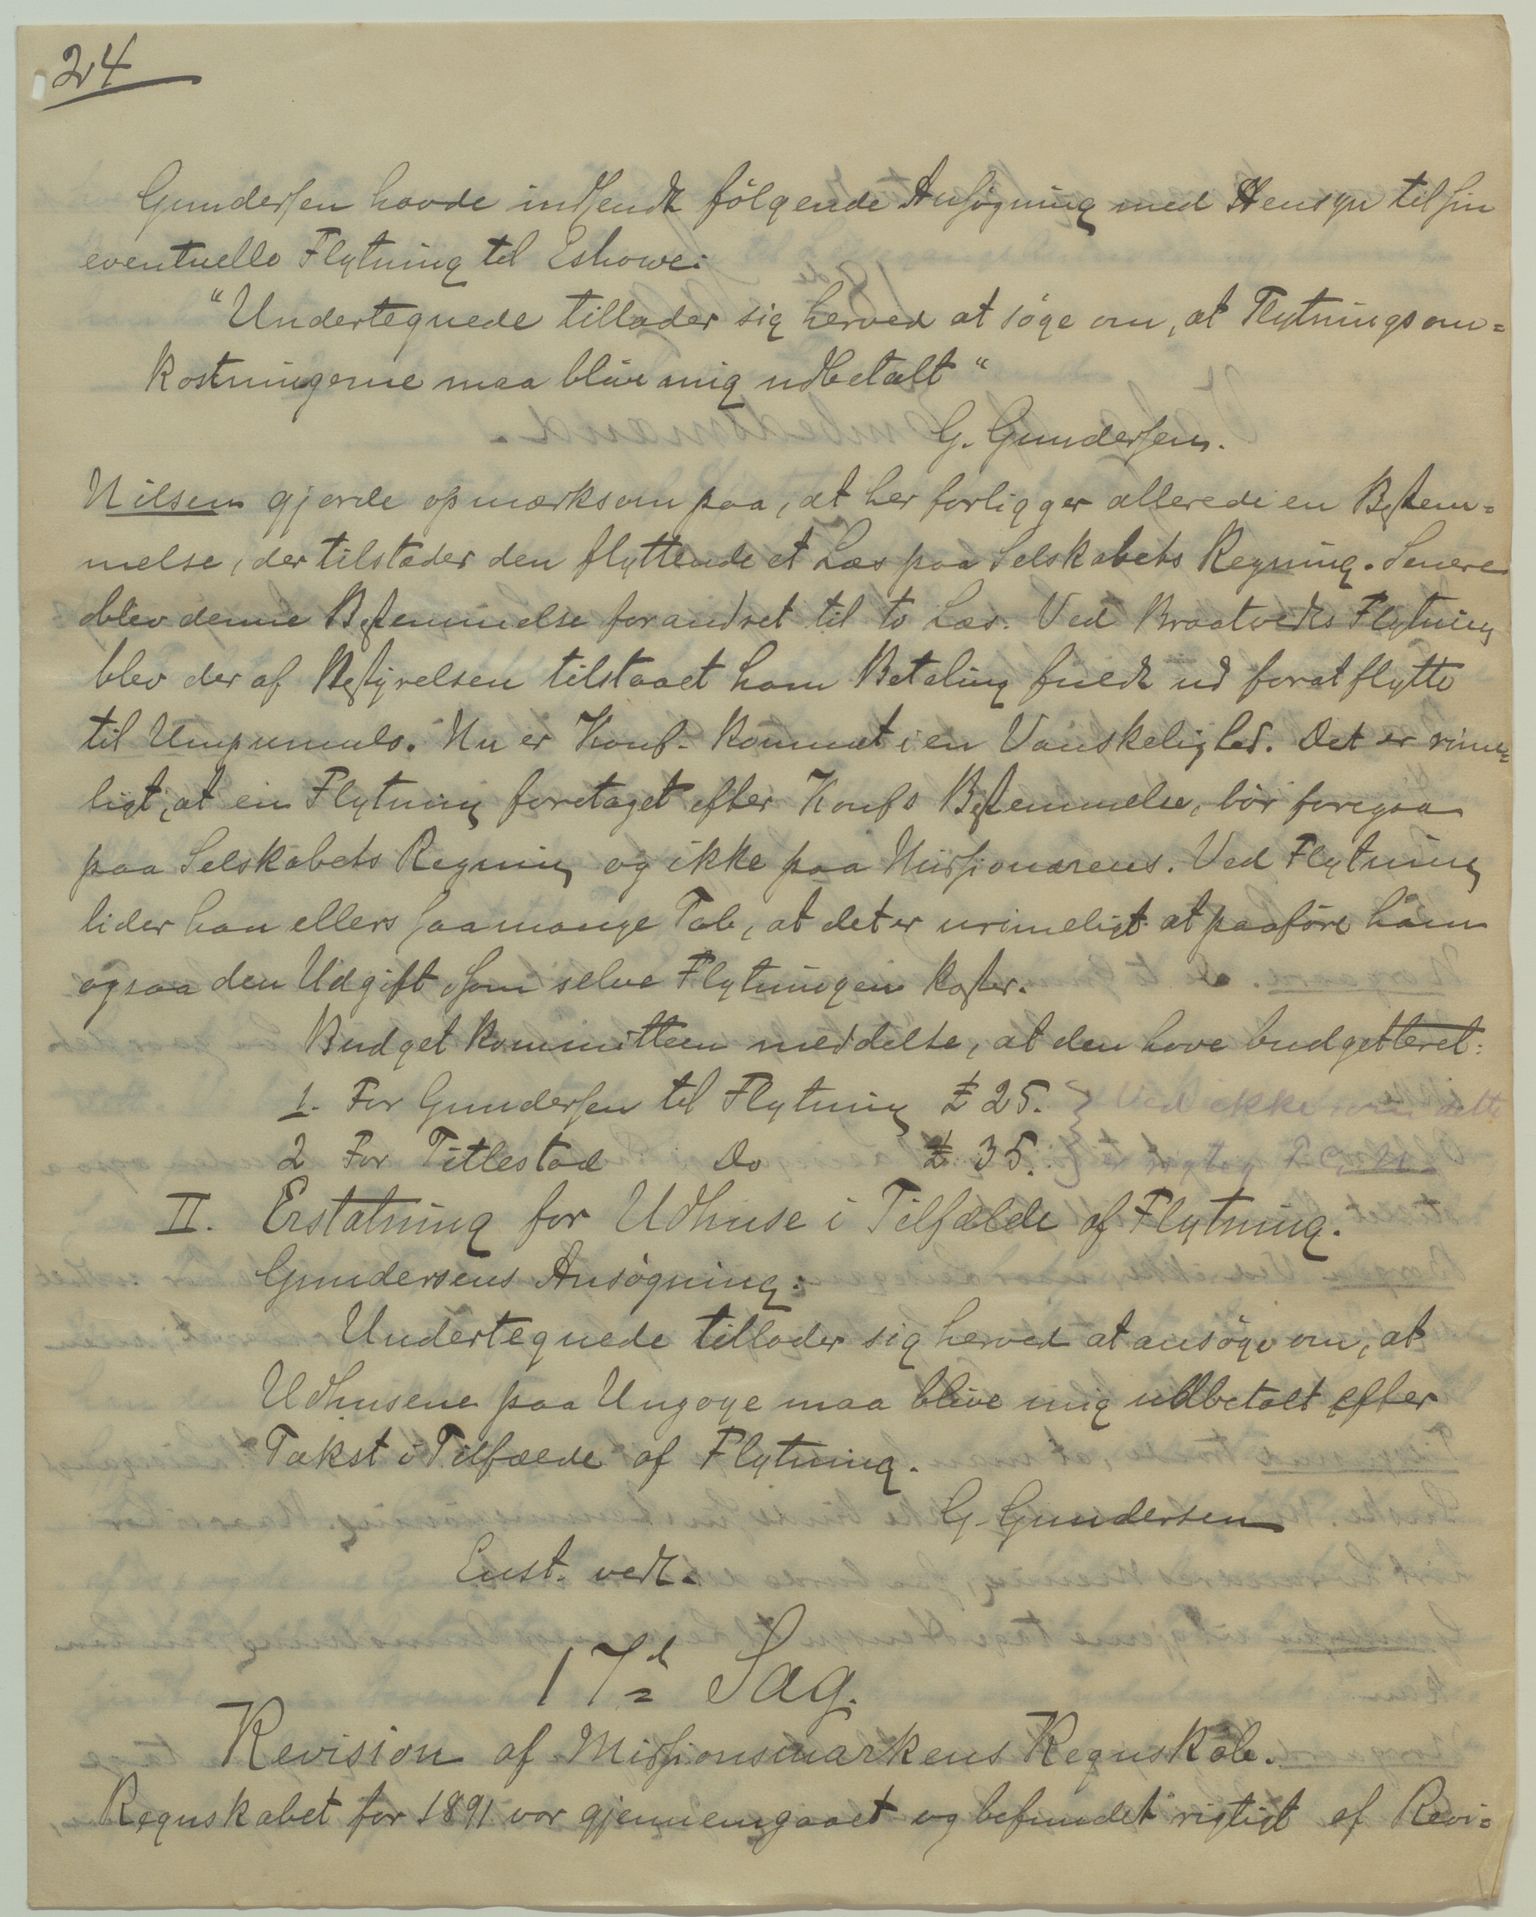 24
Gundersen havde indsendt følgende Ansøgning med Hensyn til sin
eventuelle Flytning til Eshowe:
"Undertegnede tillader sig herved at søge om, at Flytningsom=
kostningerne maa blive mig udbetalt"
G. Gundersen.
Nilsen gjorde opmærksom paa, at her forligger allerede en Bestem=
melse, der tilstæder den flyttende et Læs paa Selskabets Regning. Senere
blev denne Bestemmelse forandret til to Læs. Ved Braatvedts Flytning
blev der af Bestyrelsen tilstaaet ham Betaling fuldt ud forat flytte
til Umpumulo. Nu er Konf. kommet i en Vanskelighed. Det er rime=
ligt, at en Flytning foretaget efter Konfs Bestemmelse, bør foregaa
paa Selskabets Regning og ikke paa Missionærens. Ved Flytning
lider han ellers saa mange Tab, at det er urimeligt at paaføre ham
ogsaa den Udgift som selve Flytningen koster.
Budgetkommitteen meddelte, at den have budgetteret:
1. For Gundersen til Flytning £ 25. } Ved ikke om dette
2 For Titlestad Do £ 35. } er rigtig
II. Erstatning for Udhuse i Tilfælde af Flytning.
Gundersens Ansøgning:
Undertegnede tillader sig herved at ansøge om, at
Udhusene paa Ungoye maa blive mig udbetalt efter
Takst i Tilfælde af Flytning.
G. Gundersen
Enst. vedt.
17d Sag.
Revision af Missionsmarkens Regnskab.
Regnskabet for 1891 var gjennemgaaet og befundet rigtigt af Revi=